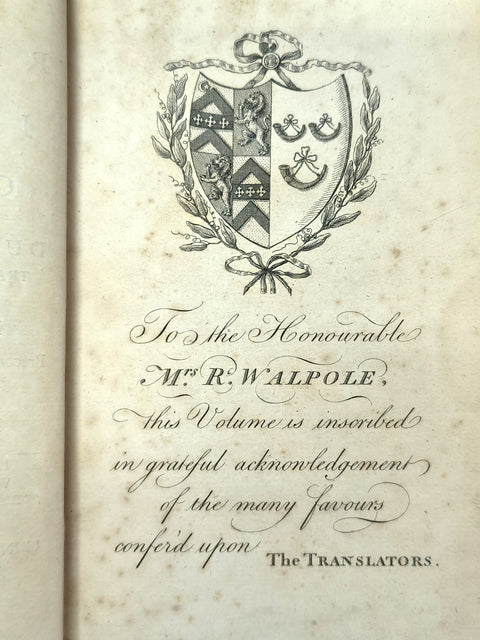 To the Honourable
Mrs Rd. WALPOLE,
this Volume is inscribed
in grateful acknowledgement
of the many favours
confer'd upon
The TRANSLATORS.